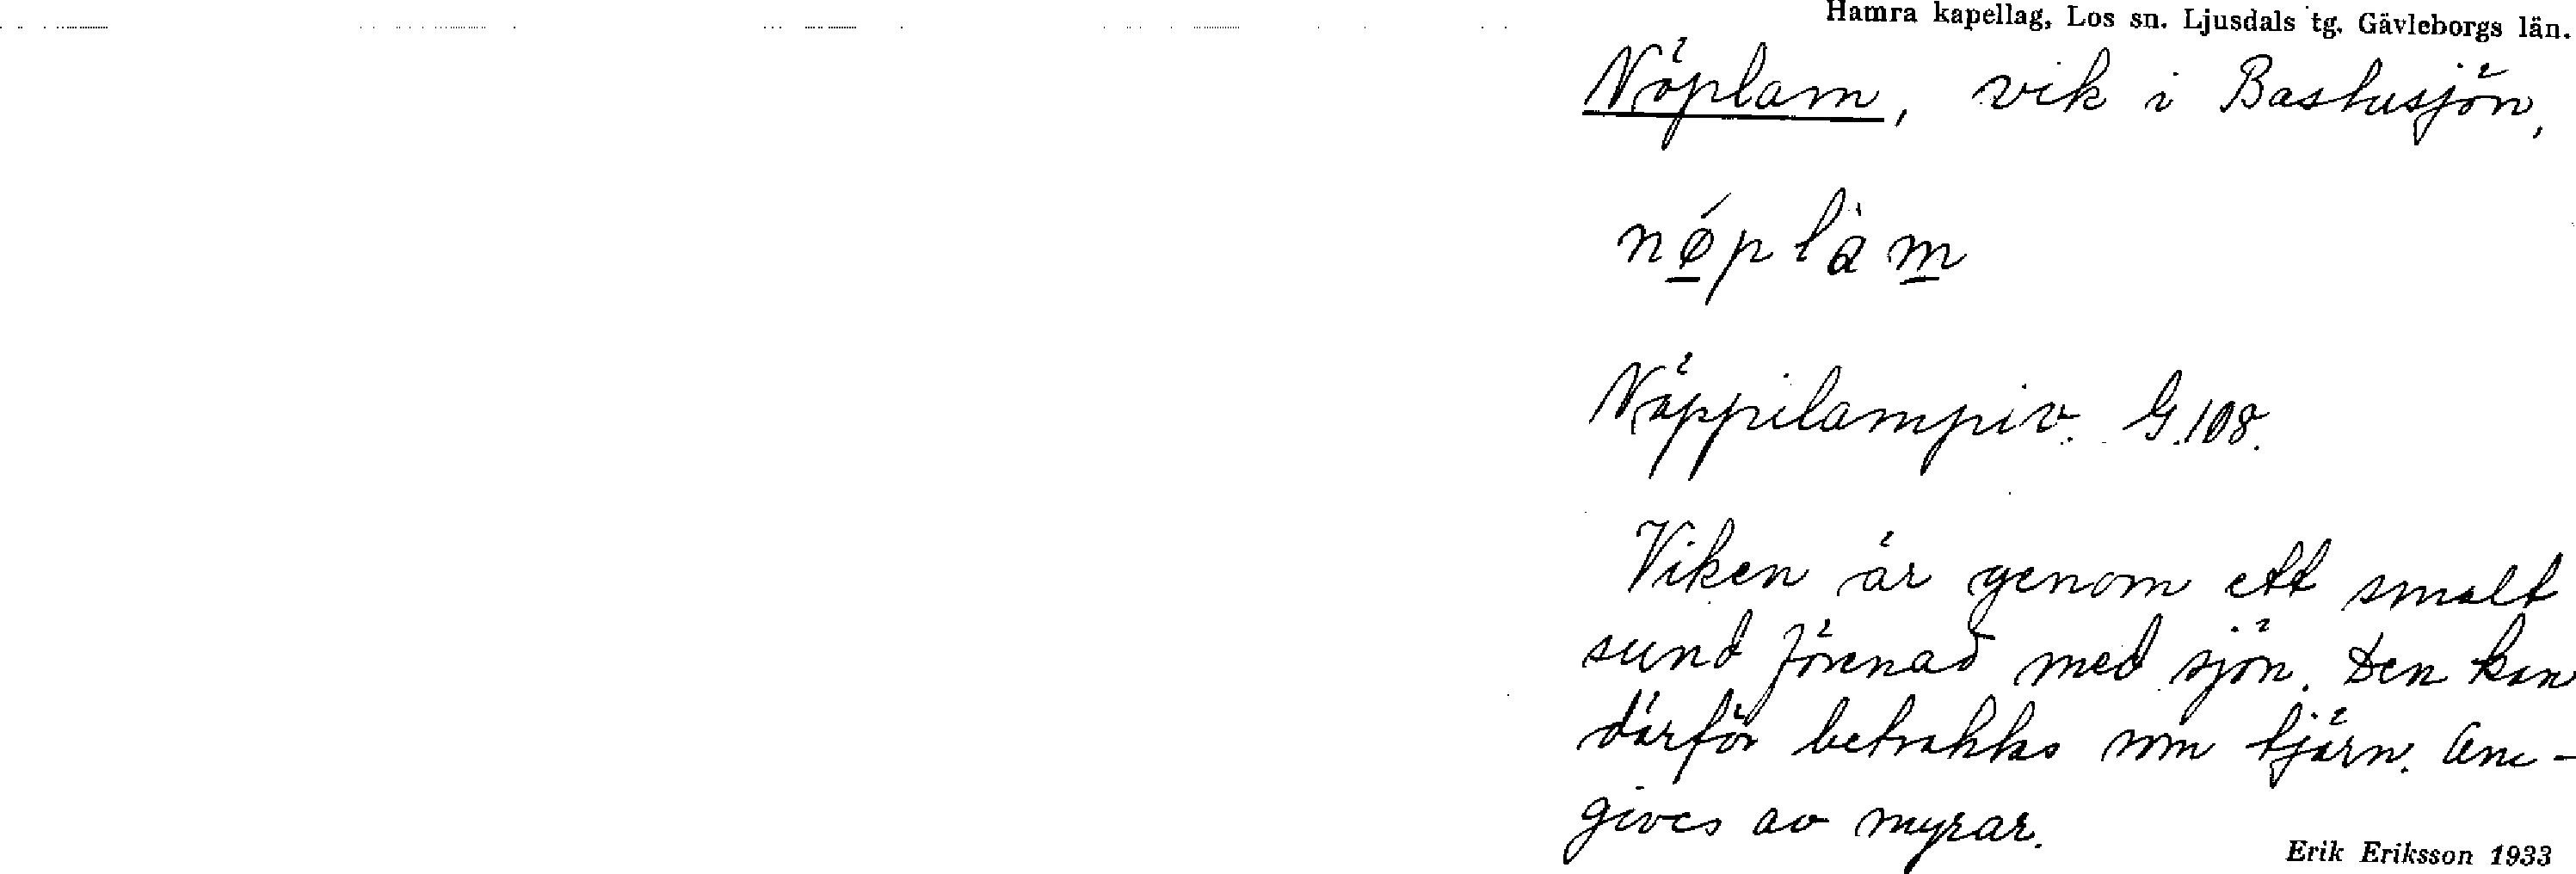 Hamra kapellag, Los sn. Ljusdals tg. Gävleborgs län.
Nöplam, vik i Bastusjön,
nǿ̲plàm̲
Näppilampiv. G.108.
Viken är genom ett smalt
sund förenad med sjön. Den kan
därför betraktas som tjärn. Om-
gives av myrar.
Erik Eriksson 1933